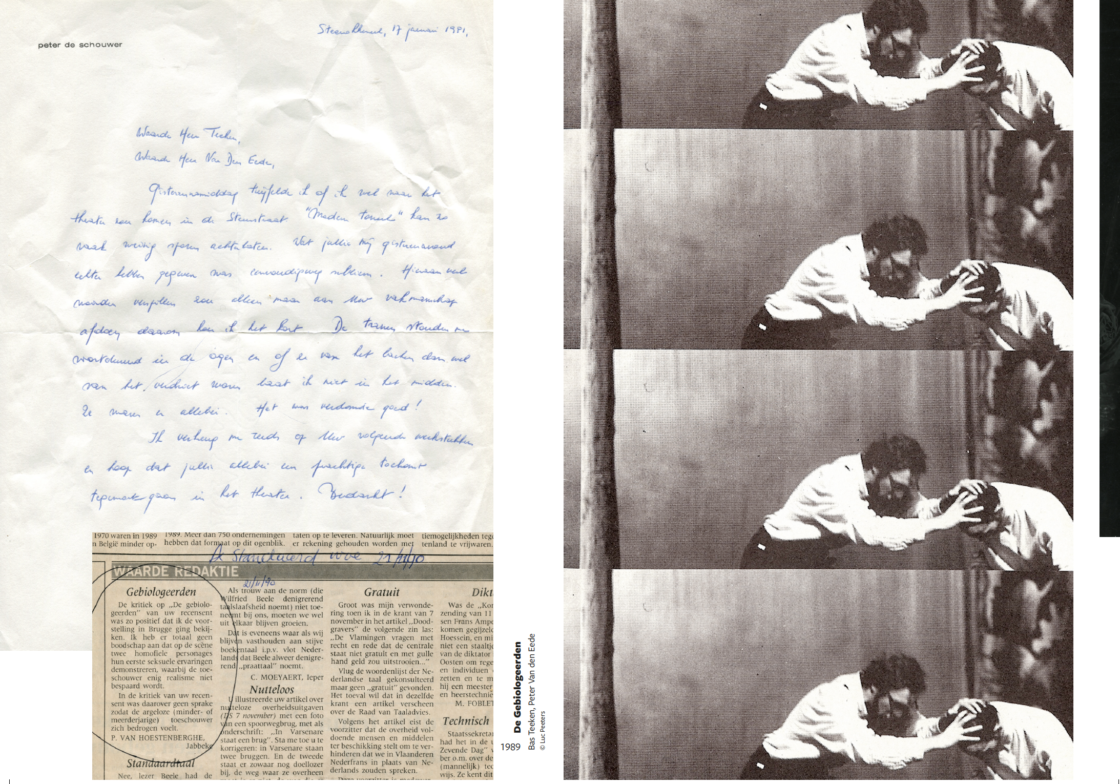 peter de schouwer
17 januari 1991,
Waarde Heer Teeken,
Waarde Heer Van Den Eede,
twijfelde ik of ik wel naar het
theater zou komen in de Steenstraat "Modern toneel" kan zo
vaak weinig sporen achterlaten. Wat jullie mij gisterenavond
echter hebben gegeven was eenvoudigweg subliem.
zou alleen maar aan Uw vakmanschap
afdoen daarom hou ik het kort. De tranen stonden me
voortdurend in de ogen en of ze van het lachen dan wel
van het verdriet waren laat ik niet in het midden.
Ze waren er allebei. Het was verdomde goed!
Ik verheug me reeds op Uw volgende werkstukken
en hoop dat jullie allebei een prachtige toekomst
tegemoetgaan in het theater. Bedankt!
1970 waren in 1989
n België minder op-
1989. Meer dan 750 ondernemingen
hebben dat formaat op dit ogenblik.
taten op te leveren. Natuurlijk moet
er rekening gehouden worden met
tiemogelijkheden teg
tenland te vrijwaren.
De Standaard woe 21/11/90
WAARDE REDAKTIE
21/11/90
Gebiologeerden
De kritiek op „De gebiolo-
geerden" van uw recensent
was zo positief dat ik de voor-
stelling in Brugge ging bekij-
ken. Ik heb er totaal geen
boodschap aan dat op de scène
twee homofiele personages
hun eerste seksuele ervaringen
demonstreren, waarbij de toe-
schouwer enig realisme niet
bespaard wordt.
In de kritiek van uw recen-
sent was daarover geen sprake
zodat de argeloze (minder- of
meerderjarige) toeschouwer
zich bedrogen voelt.
P. VAN HOESTENBERGHE,
Jabbeke
Standaardtaal
Nee, lezer Beele had de
Als trouw aan de norm (die
Wilfried Beele denigrerend
taalslaafsheid noemt) niet toe-
neemt bij ons, moeten we wel
uit elkaar blijven groeien.
Dat is eveneens waar als wij
blijven vasthouden aan stijve
boekentaal i.p.v. vlot Neder-
lands dat Beele alweer denigre-
rend „praattaal" noemt.
C. MOEYAERT, Ieper
Nutteloos
U illustreerde uw artikel over
nutteloze overheidsuitgaven
(DS 7 november) met een foto
van een spoorwegbrug, met als
onderschrift: „In Varsenare
staat een brug". Sta me toe u te
korrigeren: in Varsenare staan
twee bruggen. En de tweede
staat er zowaar nog dozelozer
bij, de weg waar ze overheen
Gratuit
Groot was mijn verwonde-
ring toen ik in de krant van 7
november in het artikel „Dood-
gravers" de volgende zin las:
„De Vlamingen vragen met
recht en rede dat de centrale
staat niet gratuit en met gulle
hand geld zou uitstrooien..."
Vlug de woordenlijst der Ne-
derlandse taal gekonsulteerd
maar geen „gratuit" gevonden.
Het toeval wil dat in dezelfde
krant een artikel verscheen
over de Raad van Taaladvies.
Volgens het artikel eist de
voorzitter dat de overheid vol-
doende mensen en middelen
ter beschikking stelt om te ver-
hinderen dat we in Vlaanderen
Nederfrans in plaats van Ne-
derlands zouden spreken.
Dikt
Was de „Ko
zending van 11
sen Frans Amp
komen gegijzel
Hoessein, en mi
niet een staaltj
van de diktator
Oosten om rege
en individuen
retten en te m
hij een meester
en beerstechnie
M. FOBLET
Technisch
Staatssekreta
had het in de
Zevende Dag"
ber o.m. over de
(mannelijk) tec
wijs. Ze kent dit
1989 De Gebiologeerden
Bas Teeken, Peter Van den Eede
© Luc Peeters